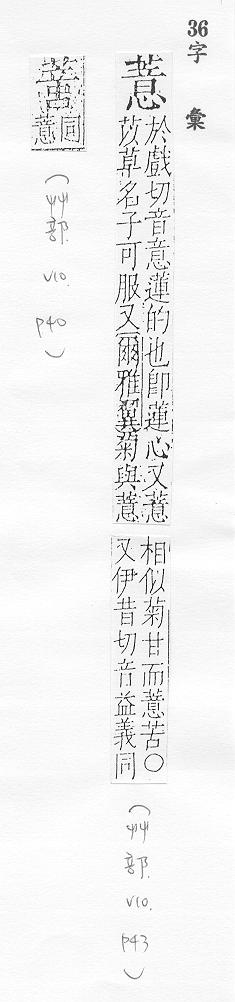 36字彙
薏
於戲切音意蓮的也卽蓮心又薏
苡草名子可服又爾雅翼菊與薏
相似菊甘而薏苦○
又伊昔切音益義同
(艸部. V10. P43)
同
薏
(艸部. V10. P40)